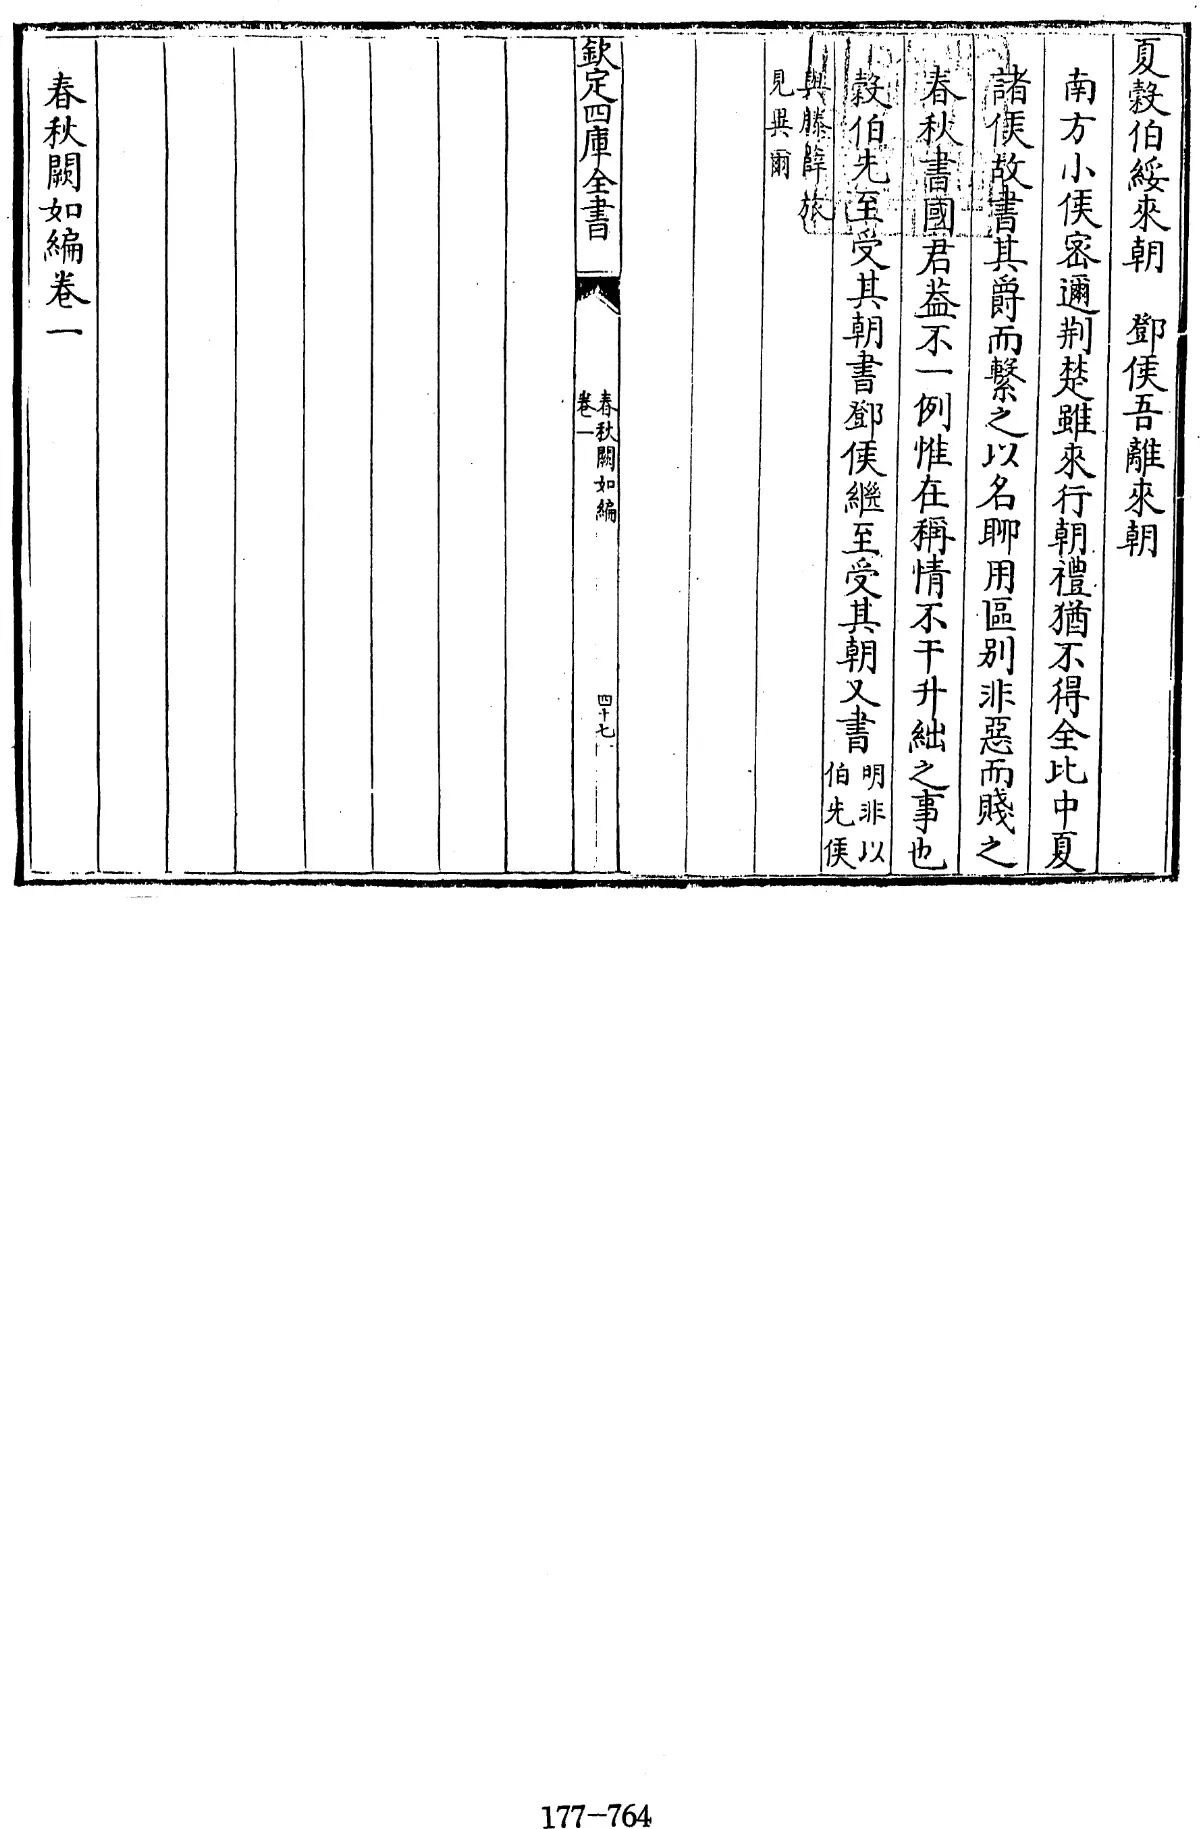 夏穀伯綏來朝　鄧侯吾離來朝
南方小侯密邇荆楚雖來行朝禮猶不得全比中夏
諸侯故書其爵而繫之以名聊用區别非惡而賤之
春秋書國君葢不一例惟在稱情不干升絀之事也
穀伯先至受其朝書鄧侯繼至受其朝又書
明非以
伯先侯
與滕薛旅
見異爾
欽定四庫全書
春秋闕如編
卷一
四十七
春秋闕如編卷一
177-764